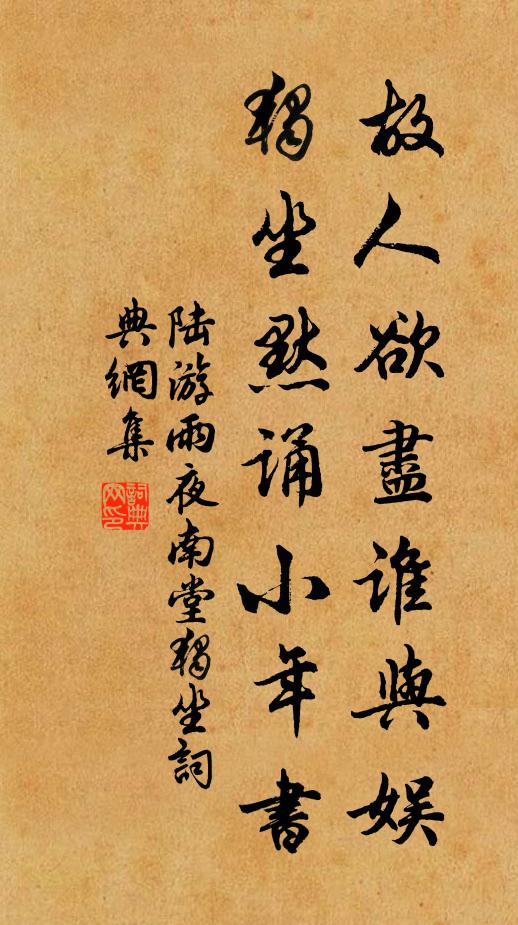 故人欲盡誰與娱
獨坐默誦小年書
陆游雨夜南堂獨坐詞
典網集
詞典
网印